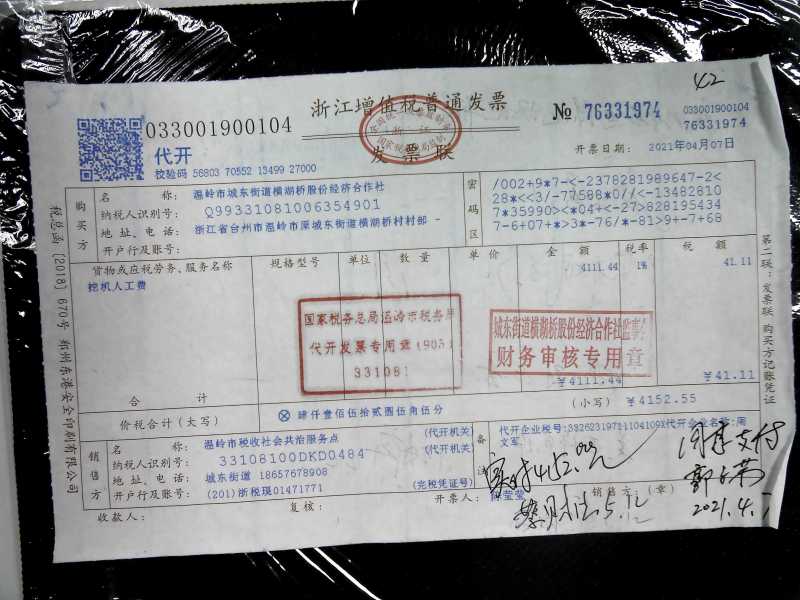 42
浙江增值税普通发票
№ 76331974
033001900104
76331974
033001900104
代开
校验码 56803 70552 13499 27000
发票联
开票日期: 2021年04月07日
购买方
名 称: 温岭市城东街道横湖桥股份经济合作社
纳税人识别号: Q99331081006354901
地址、电话: 浙江省台州市温岭市原城东街道横湖桥村村部 -
开户行及账号:
密码区
/002+9*7-<-2378281989647-2<
28*<<3/-77588*0//<-13482810
7*35990><*04+<-27>828195434
7-6+07*>3*-76/*-81>9+-7+68
货物或应税劳务、服务名称 规格型号 单位 数量 单价 金额 税率 税额
挖机人工费 4111.44 1% 41.11
国家税务总局温岭市税务局
代开发票专用章
331081
城东街道横湖桥股份经济合作社监事会
财务审核专用章
合 计 ¥4111.44 ¥41.11
价税合计(大写) ⊗ 肆仟壹佰伍拾贰圆伍角伍分 (小写) ¥4152.55
销售方
名 称: 温岭市税收社会共治服务点 (代开机关)
纳税人识别号: 33108100DKD0484 (代开机关)
地址、电话: 城东街道 18657678908
开户行及账号: (201)浙税现01471771 (完税凭证号)
备注
代开企业名称:周
文军
收款人:
复核:
开票人:
销售方:(章)
2021.4.
税总函〔2018〕670号 郑州东港安全印刷有限公司
第二联:发票联 购买方记账凭证